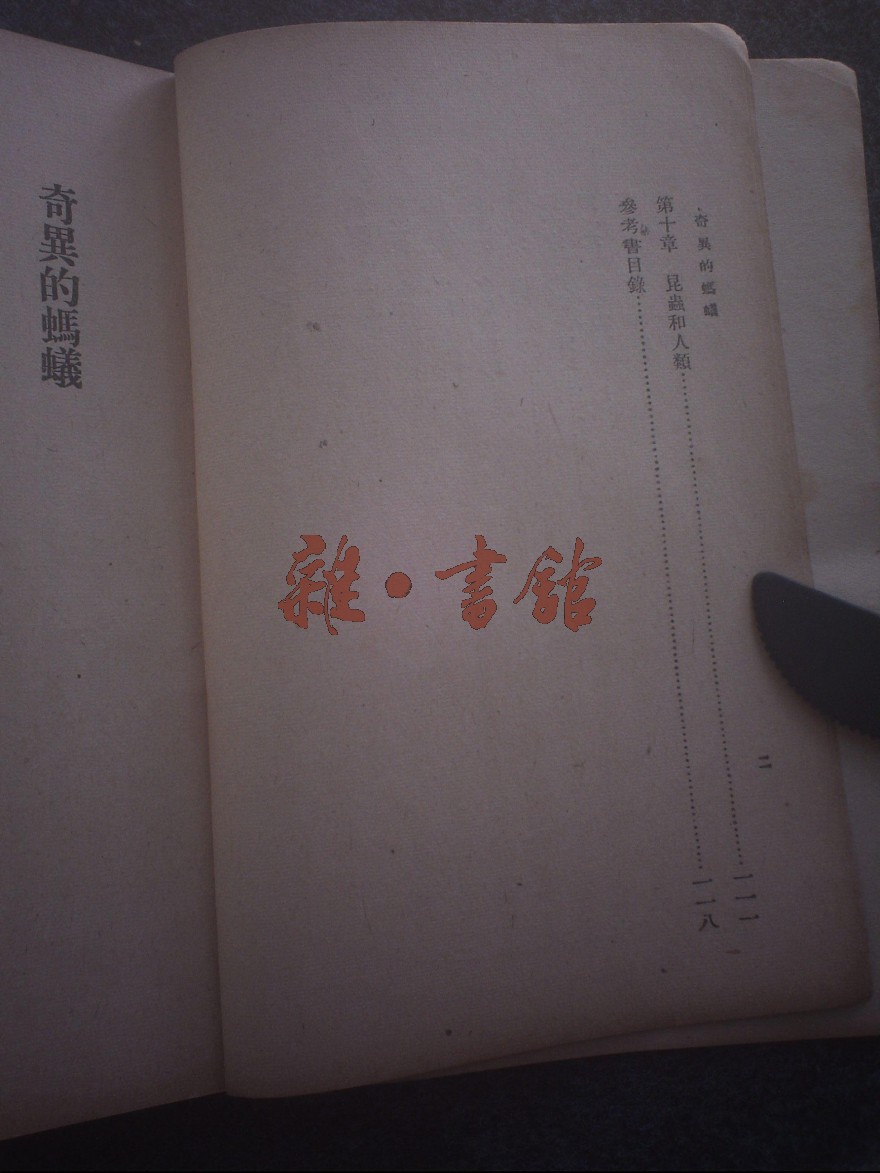 奇異的螞蟻
第十章　昆蟲和人類……一一一
參考書目錄……一一八
二
奇異的螞蟻
雜・書館